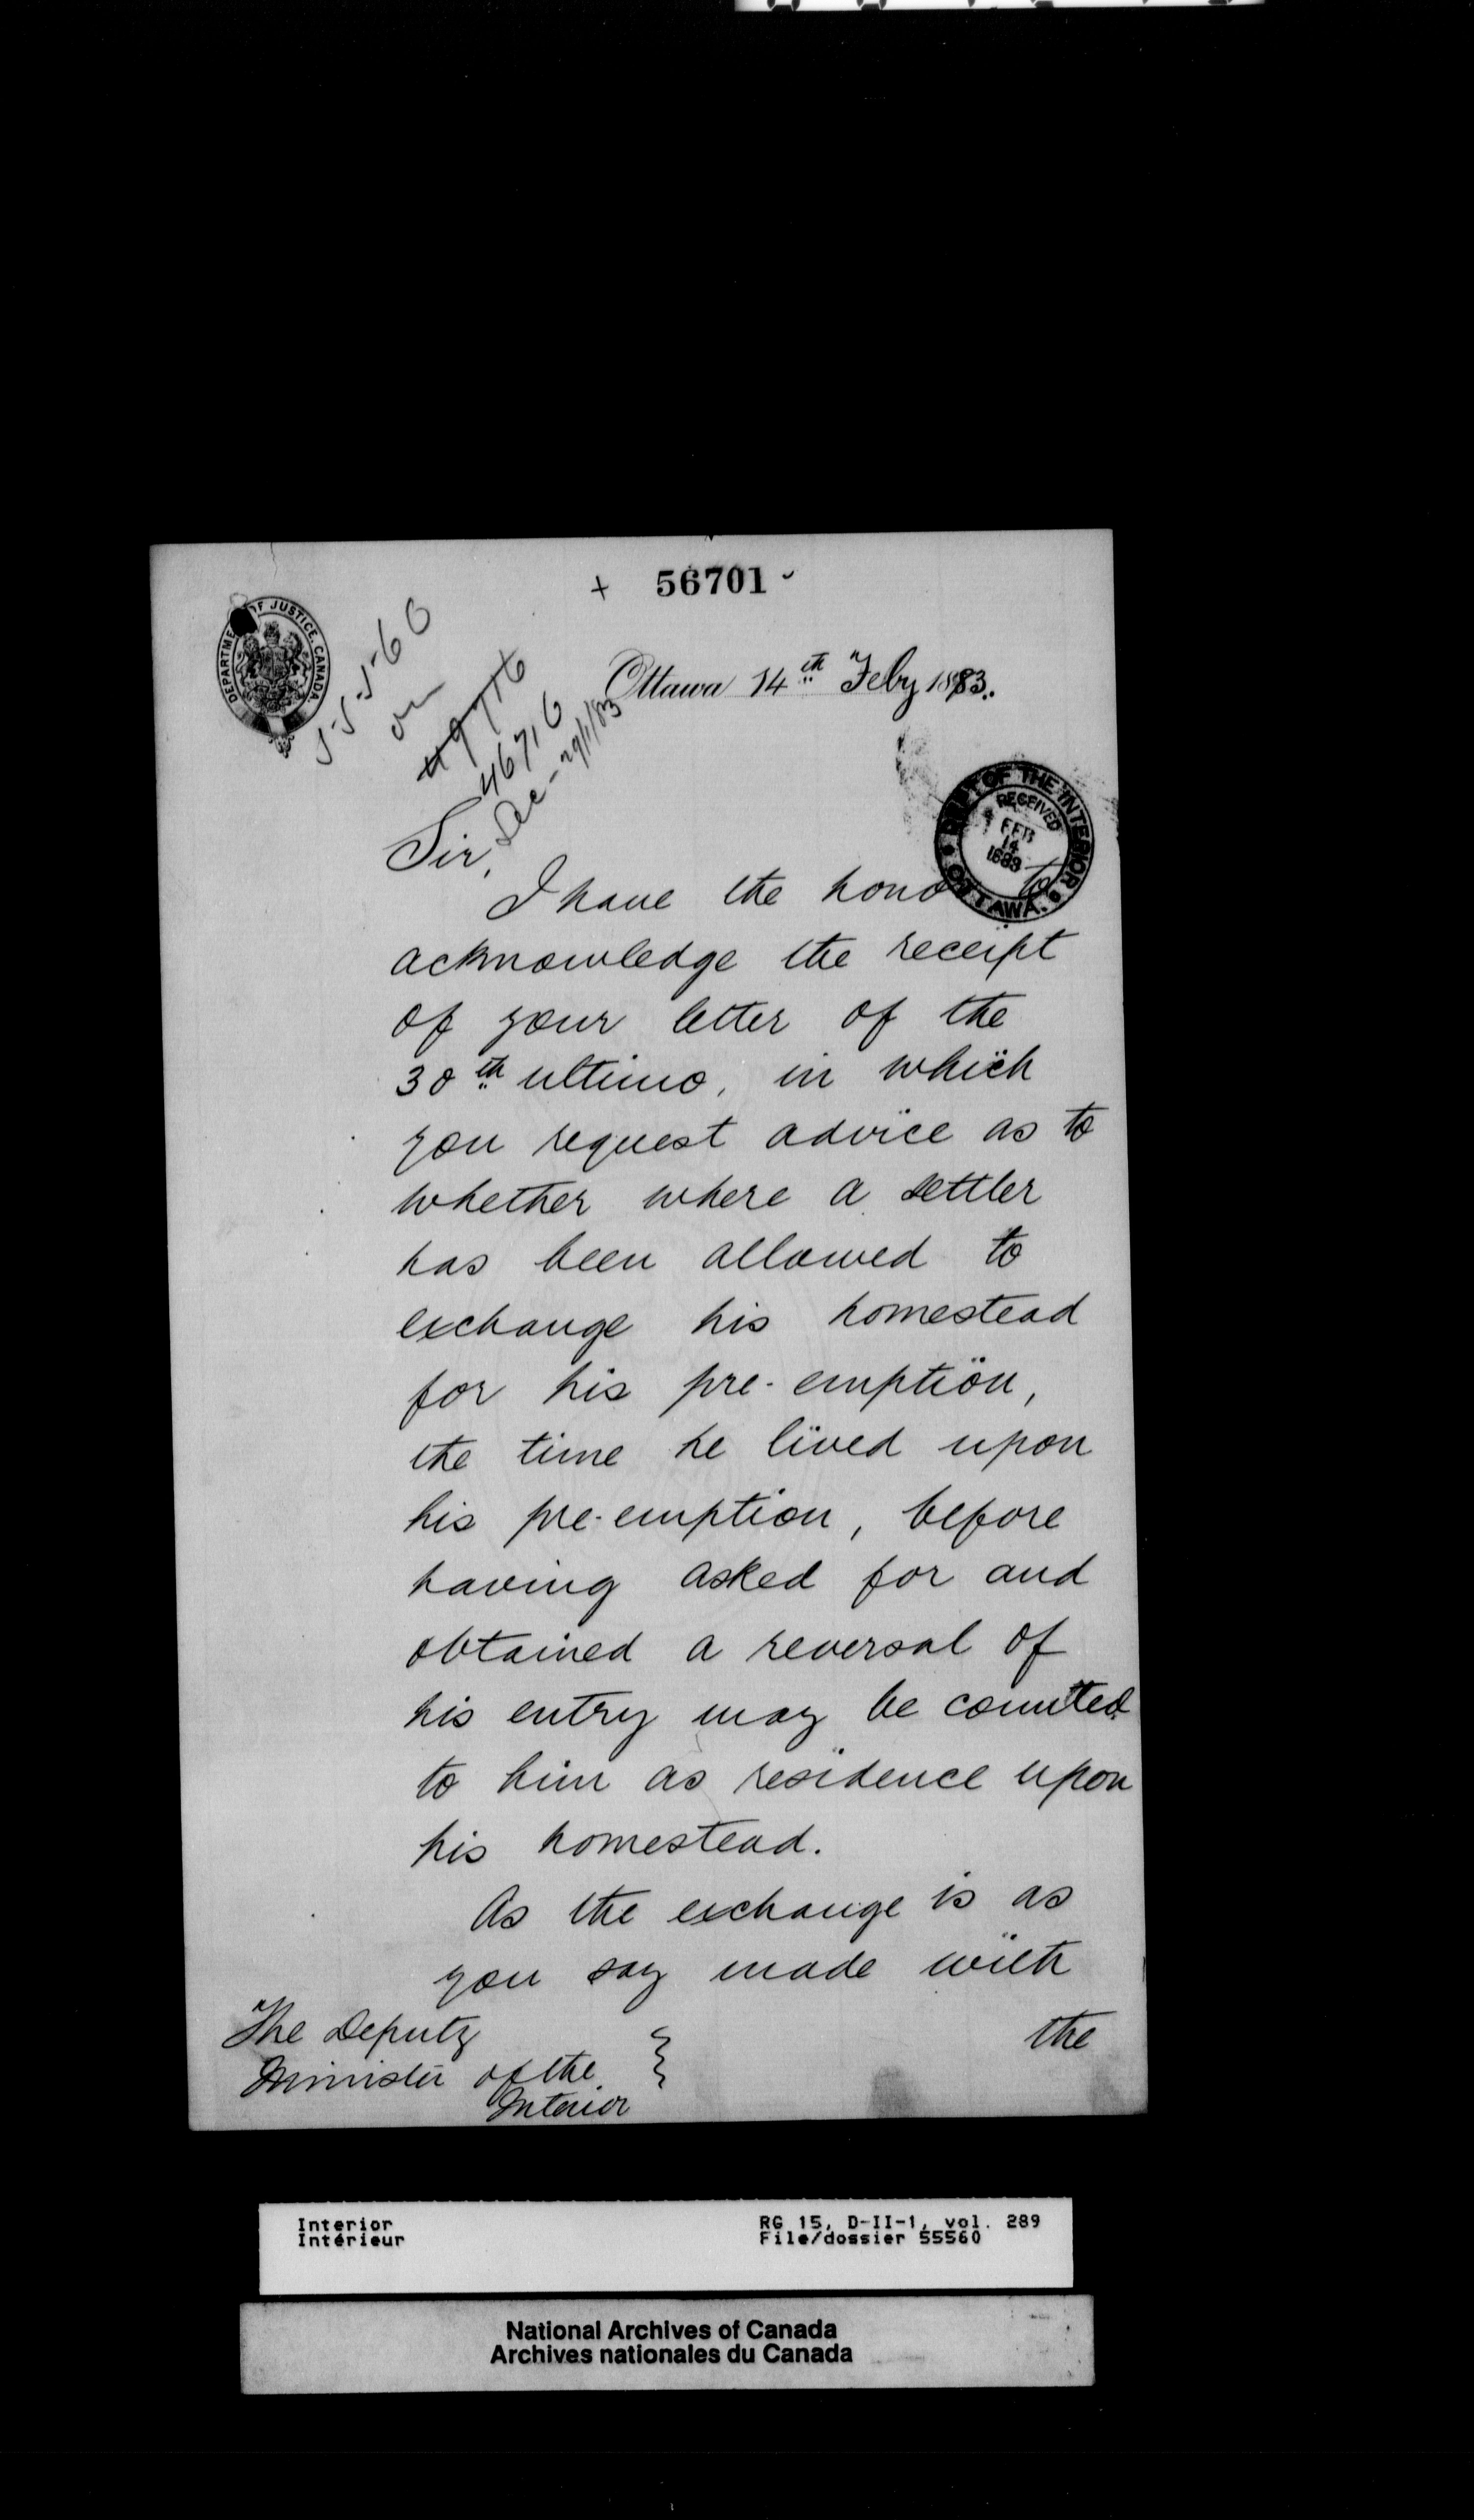 + 56701
DEPARTMENT OF JUSTICE, CANADA.
55560
on
49716
46716
Dec - 29/1/83
Ottawa 14th Feby 1883.
DEPT OF THE INTERIOR
RECEIVED
FEB
14
1883
OTTAWA.
Sir,
I have the honor to
acknowledge the receipt
of your letter of the
30th ultimo, in which
you request advice as to
whether where a settler
has been allowed to
exchange his homestead
for his pre-emption,
the time he lived upon
his pre-emption, before
having asked for and
obtained a reversal of
his entry may be counted
to him as residence upon
his homestead.
As the exchange is as
you say made with
the
The Deputy
Minister of the
Interior
Interior
Intérieur
RG 15, D-II-1, vol. 289
File/dossier 55560
National Archives of Canada
Archives nationales du Canada